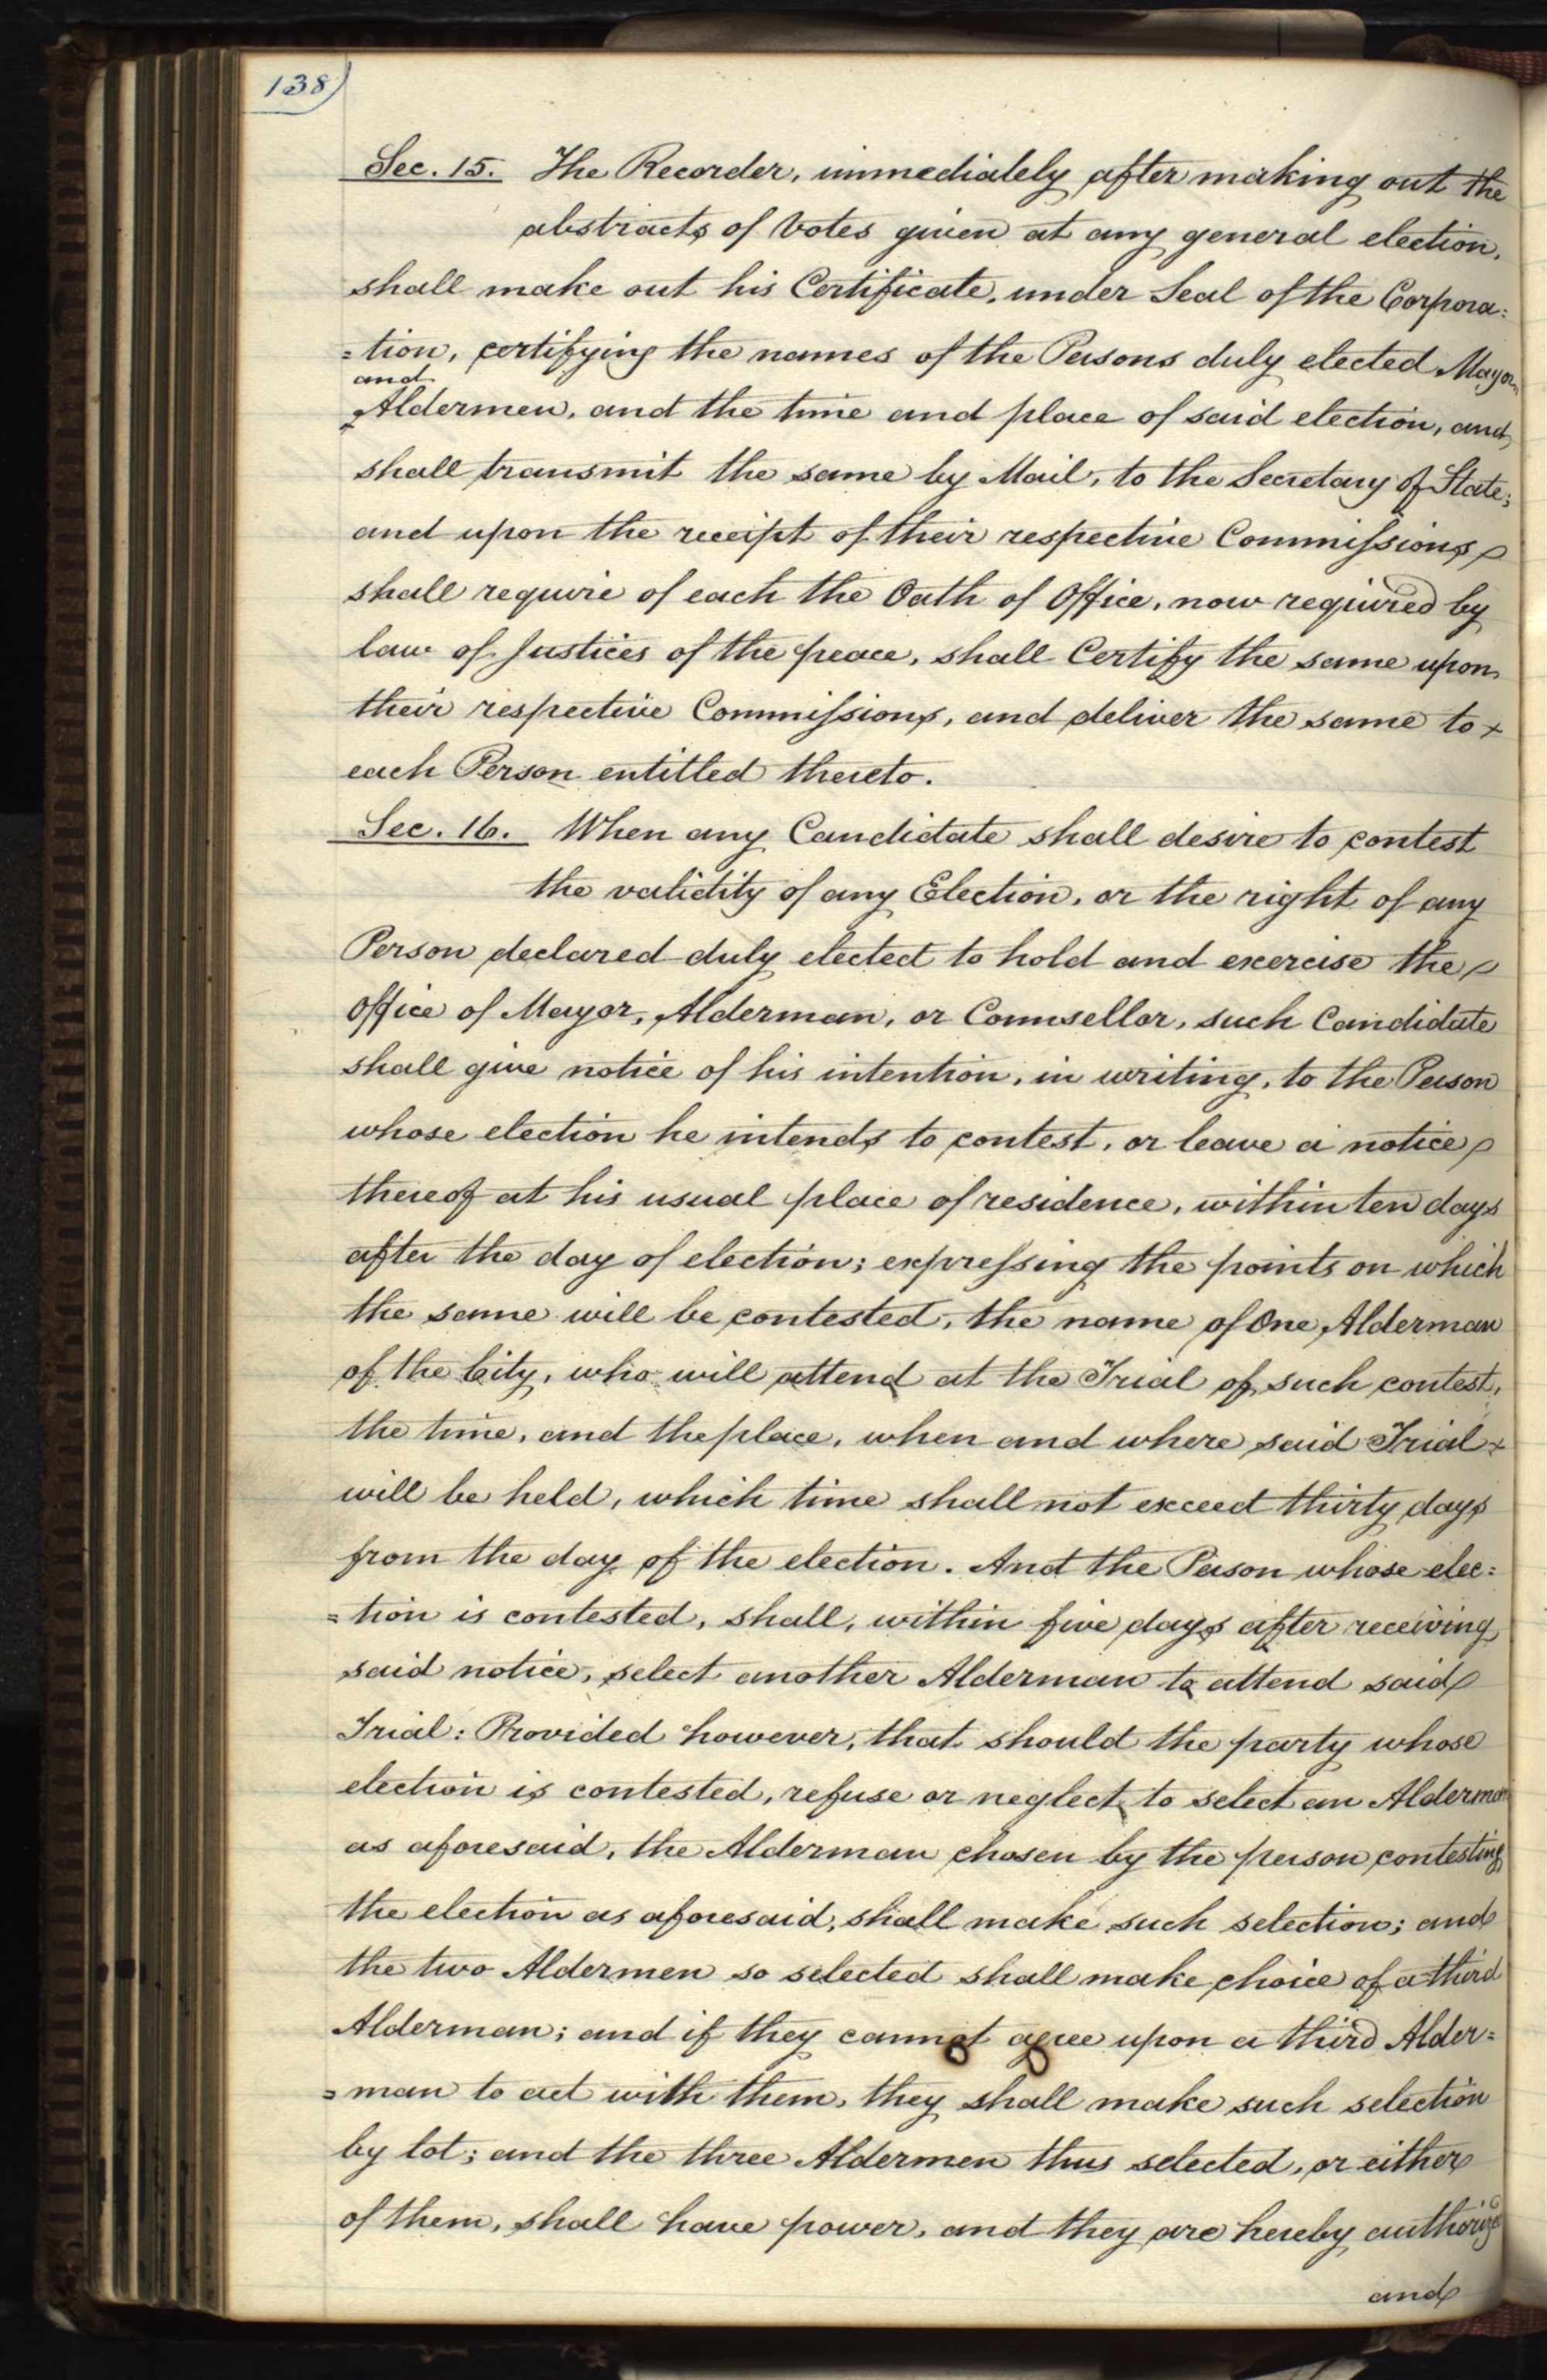 138
Sec. 15. The Recorder, immediately after making out the
abstracts of Votes given at any general election,
shall make out his Certificate, under Seal of the Corpora:
=tion, certifying the names of the Persons duly elected Mayor
and
Aldermen, and the time and place of said election, and
shall transmit the same by Mail, to the Secretary of State;
and upon the receipt of their respective Commissions
shall require of each the Oath of Office, now required by
law of Justices of the peace, shall Certify the same upon
their respective Commissions, and deliver the same to
each Person entitled thereto.
Sec. 16. When any Candidate shall desire to contest
the validity of any Election, or the right of any
Person declared duly elected to hold and exercise the
Office of Mayor, Alderman, or Counsellor, such Candidate
shall give notice of his intention, in writing, to the Person
whose election he intends to contest, or leave a notice
thereof at his usual place of residence, within ten days
after the day of election; expressing the points on which
the same will be contested, the name of One Alderman
of the City, who will attend at the Trial of such contest,
the time, and the place, when and where said Trial
will be held, which time shall not exceed thirty days
from the day of the election. And the Person whose elec:
=tion is contested, shall, within five days after receiving
said notice, select another Alderman to attend said
Trial: Provided however, that should the party whose
election is contested, refuse or neglect to select an Alderman
as aforesaid, the Alderman chosen by the person contesting
the election as aforesaid, shall make such selection; and
the two Aldermen so selected shall make choice of a third
Alderman; and if they cannot agree upon a third Alder=
=man to act with them, they shall make such selection
by lot; and the three Aldermen thus selected, or either
of them, shall have power, and they are hereby authorized
and